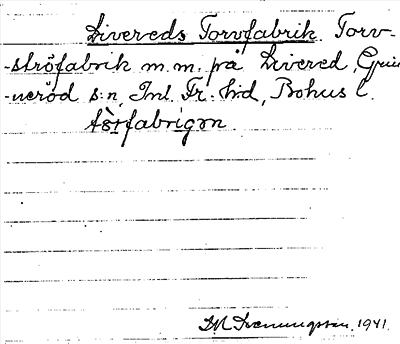 Livereds Torvfabrik. Torv-
-ströfabrik m.m. på Livered, Grin
-neröd s:n, Inl. Fr. hd, Bohus l.
1941.